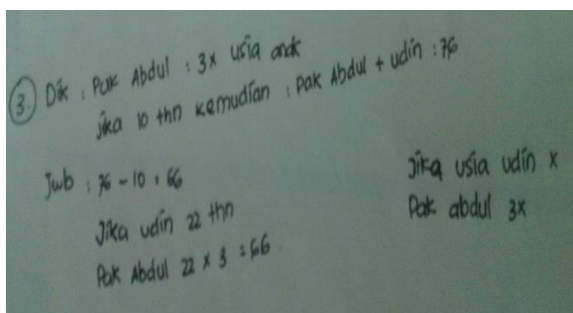 3. Dik : Pak Abdul : 3x usia anak
jika 10 thn kemudian : pak Abdul + udin : 76
Jwb : 76 - 10 = 66
Jika udin 22 thn
Pak Abdul 22 x 3 = 66
Jika usia udin x
Pak abdul 3x